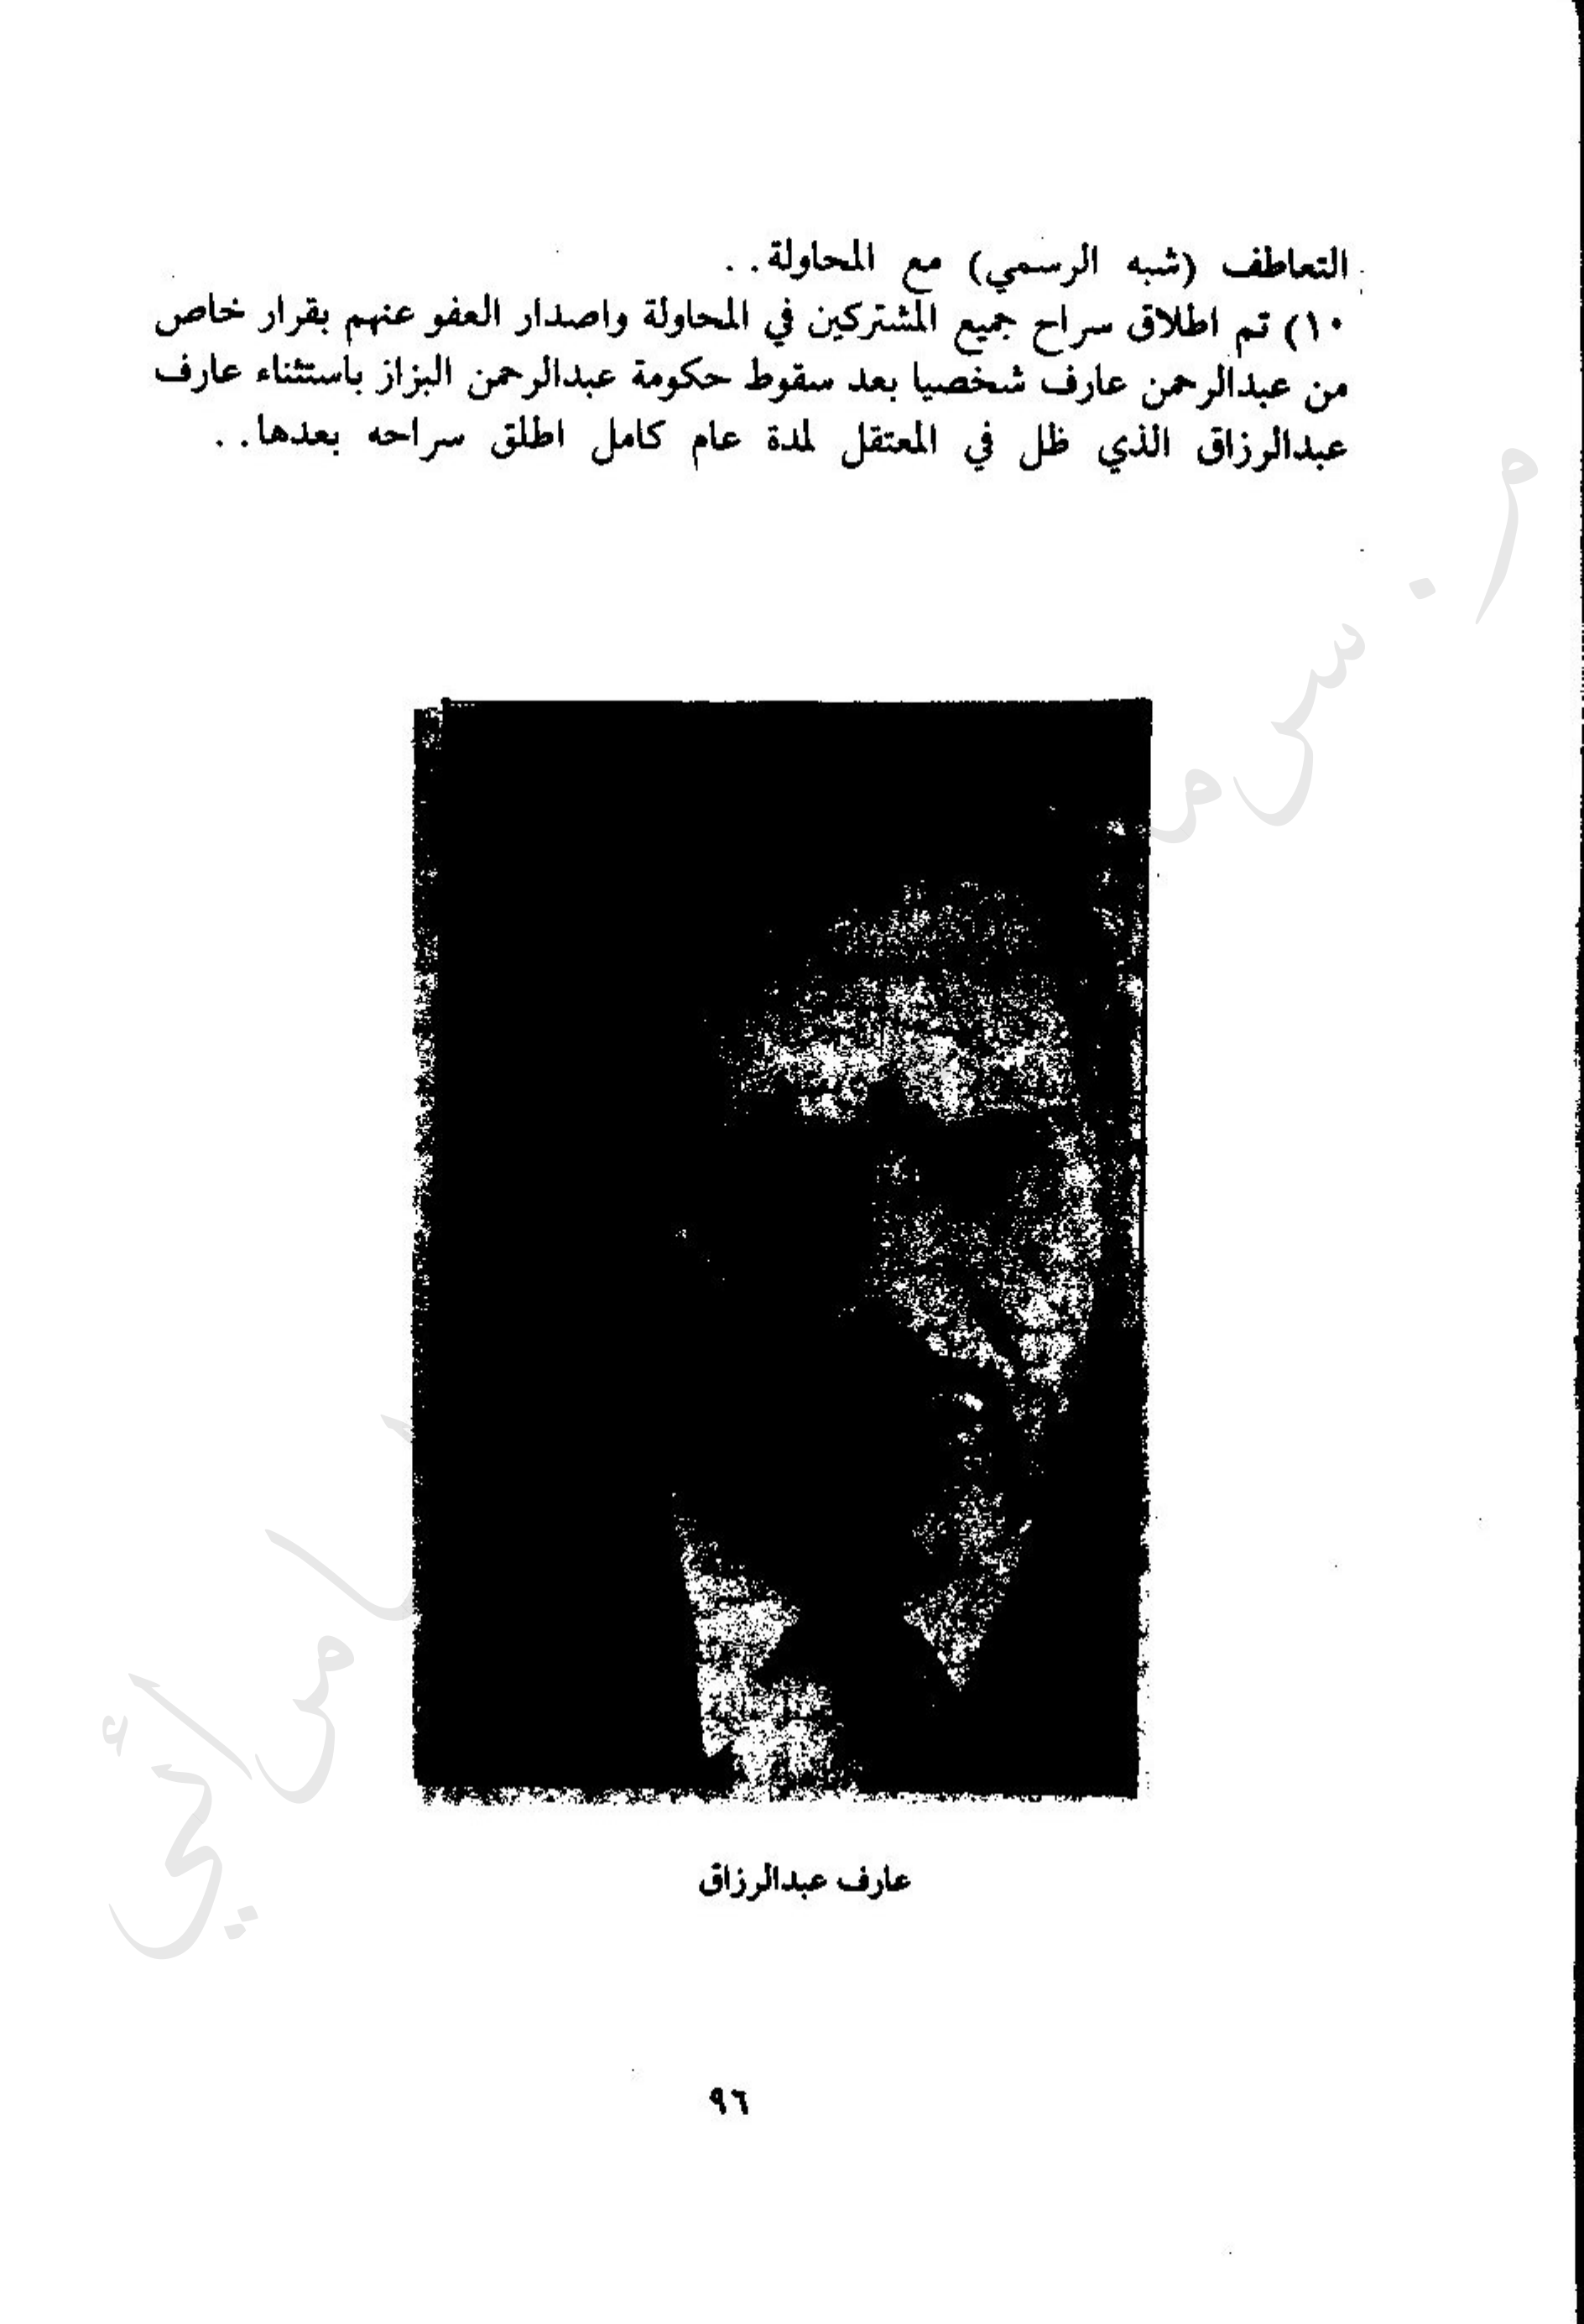 التعاطف (شبه الرسمي) مع المحاولة..
١٠) تم اطلاق سراح جميع المشتركين في المحاولة واصدار العفو عنهم بقرار خاص
من عبدالرحمن عارف شخصيا بعد سقوط حكومة عبدالرحمن البزاز باستثناء عارف
عبدالرزاق الذي ظل في المعتقل لمدة عام كامل اطلق سراحه بعدها..
عارف عبدالرزاق
٩٦